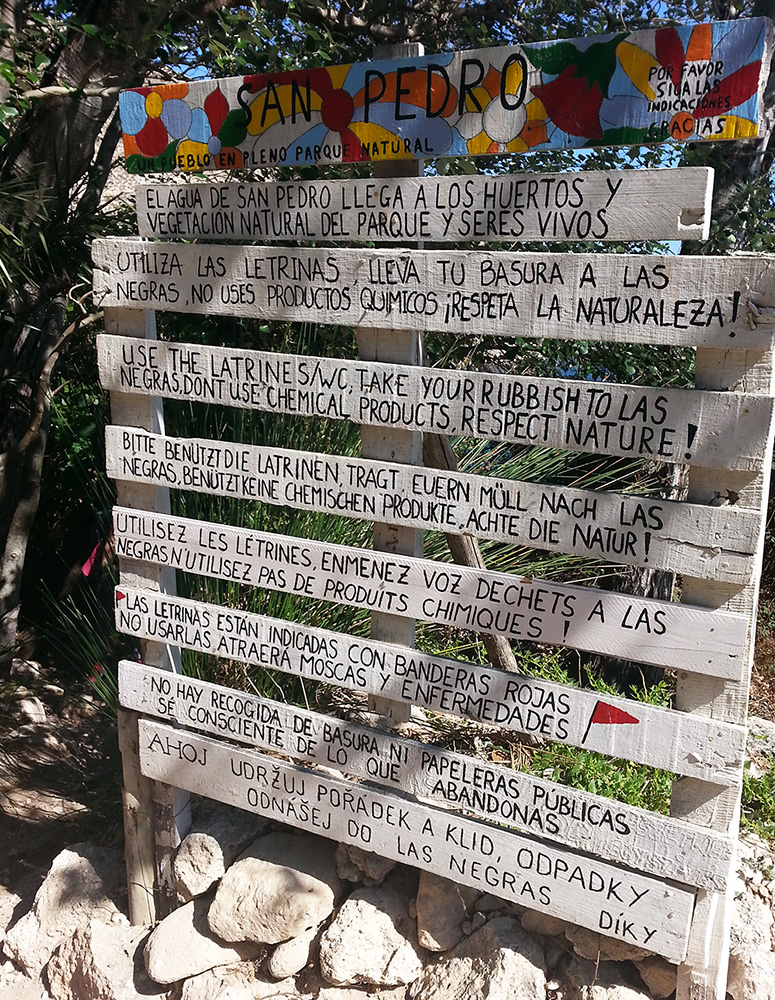 SAN PEDRO
UN PUEBLO EN PLENO PARQUE NATURAL
POR FAVOR
SIGA LAS
INDICACIONES
GRACIAS
EL AGUA DE SAN PEDRO LLEGA A LOS HUERTOS Y
VEGETACIÓN NATURAL DEL PARQUE Y SERES VIVOS
UTILIZA LAS LETRINAS, LLEVA TU BASURA A LAS
NEGRAS, NO USES PRODUCTOS QUIMICOS ¡RESPETA LA NATURALEZA!
USE THE LATRINES/WC, TAKE YOUR RUBBISH TO LAS
NEGRAS, DONT USE CHEMICAL PRODUCTS, RESPECT NATURE!
BITTE BENÜTZT DIE LATRINEN, TRAGT EUERN MÜLL NACH LAS
NEGRAS, BENÜTZT KEINE CHEMISCHEN PRODUKTE, ACHTE DIE NATUR!
UTILISEZ LES LETRINES, ENMENEZ VOZ DECHETS A LAS
NEGRAS N'UTILISEZ PAS DE PRODUÍTS CHIMIQUES!
LAS LETRINAS ESTÁN INDICADAS CON BANDERAS ROJAS
NO USARLAS, ATRAERÁ MOSCAS Y ENFERMEDADES
NO HAY RECOGIDA DE BASURA NI PAPELERAS PÚBLICAS
SÉ CONSCIENTE DE LO QUE ABANDONAS
AHOJ UDRŽUJ POŘADEK A KLID, ODPADKY
ODNÁŠEJ DO LAS NEGRAS DÍKY